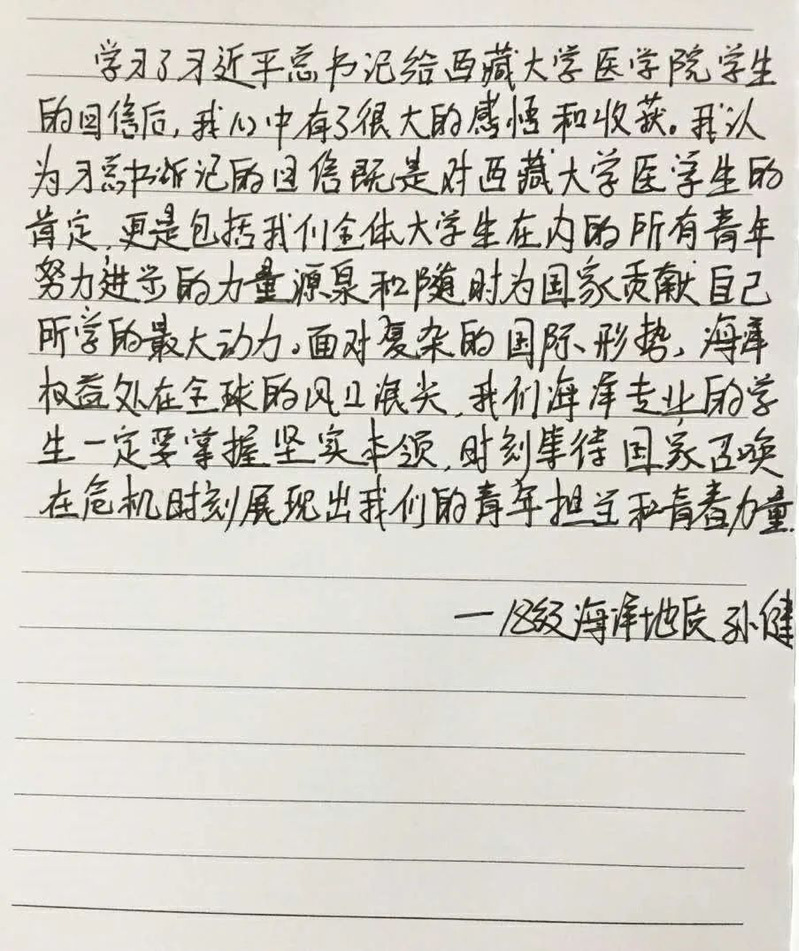 学习了习近平总书记给西藏大学医学院学生
的回信后,我心中有了很大的感悟和收获。我认
为习总书记的回信既是对西藏大学医学生的
肯定,更是包括我们全体大学生在内的所有青年
努力进步的力量源泉和随时为国家贡献自己
所学的最大动力。面对复杂的国际、形势,海洋
权益处在全球的风口浪尖,我们海洋专业的学
生一定要掌握坚实本领,时刻等待国家召唤
在危机时刻展现出我们的青年担当和青春力量.
一18级海洋地质 孙健